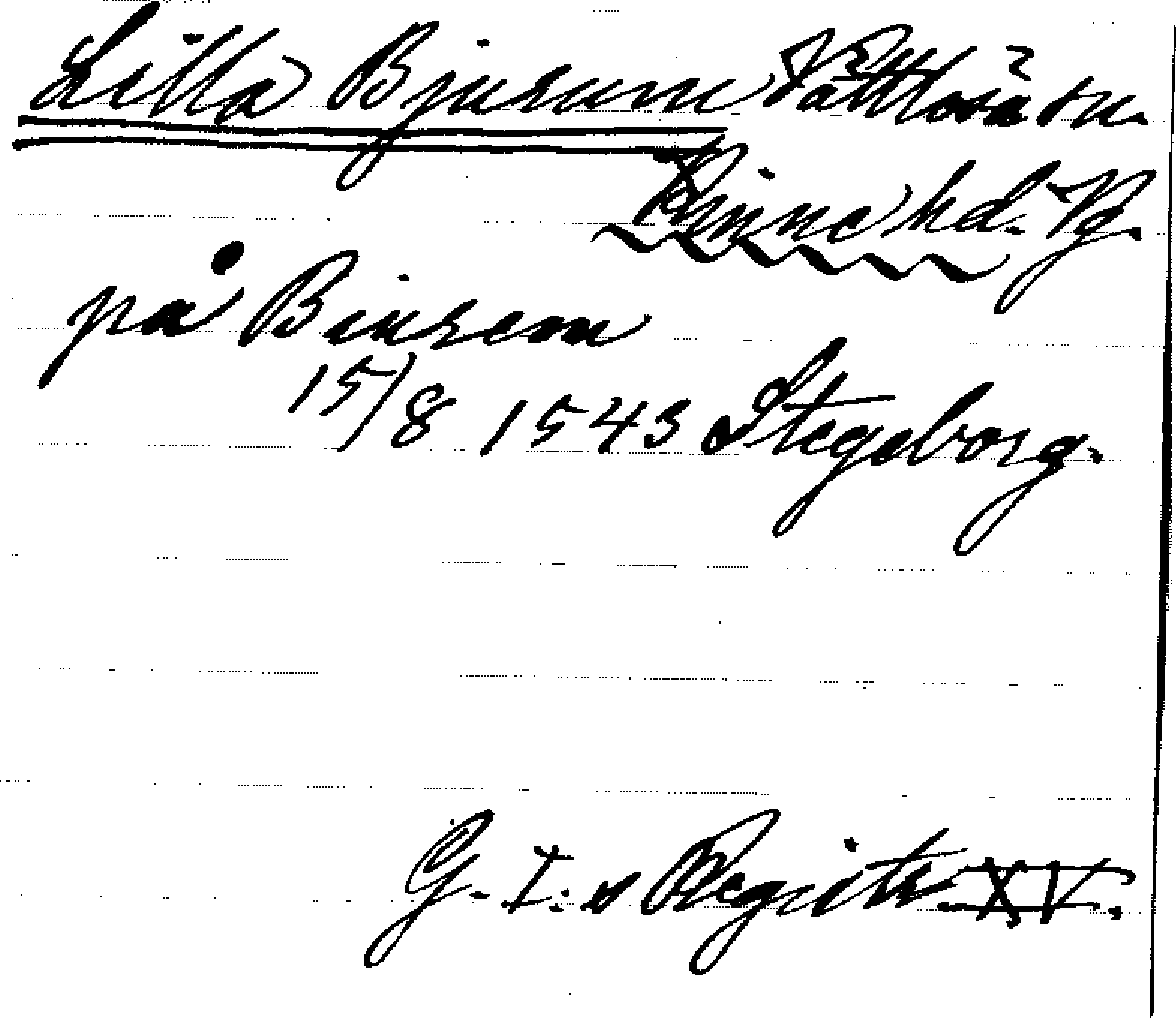 Lilla Bjurum Vättlösa sn.
Kinne hd. Vg.
på Biurem
15/8 1543 Stegeborg.
G. I:s Registr. XV.